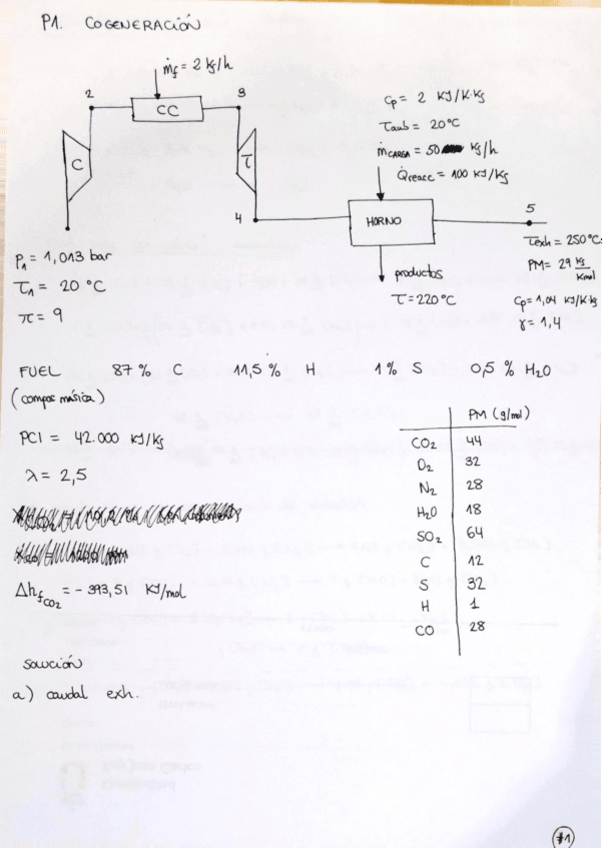 P1. COGENERACIÓN
ṁf = 2 kg/h
2
3
CC
C
T
4
HORNO
5
Cp = 2 KJ/K·Kg
Tamb = 20°C
ṁCARGA = 50 Kg/h
Q̇reacc = 100 KJ/Kg
productos
T = 220°C
Texh = 250°C
PM = 29 Kg/Kmol
Cp = 1,04 KJ/K·Kg
γ = 1,4
P1 = 1,013 bar
T1 = 20 °C
π = 9
FUEL 87 % C 11,5 % H 1 % S 0,5 % H2O
(compos másica)
PCI = 42.000 KJ/Kg
λ = 2,5
ΔhfCO2 = - 393,51 KJ/mol
PM (g/mol)
CO2 44
O2 32
N2 28
H2O 18
SO2 64
C 12
S 32
H 1
CO 28
SOLUCIÓN
a) caudal exh.
#1